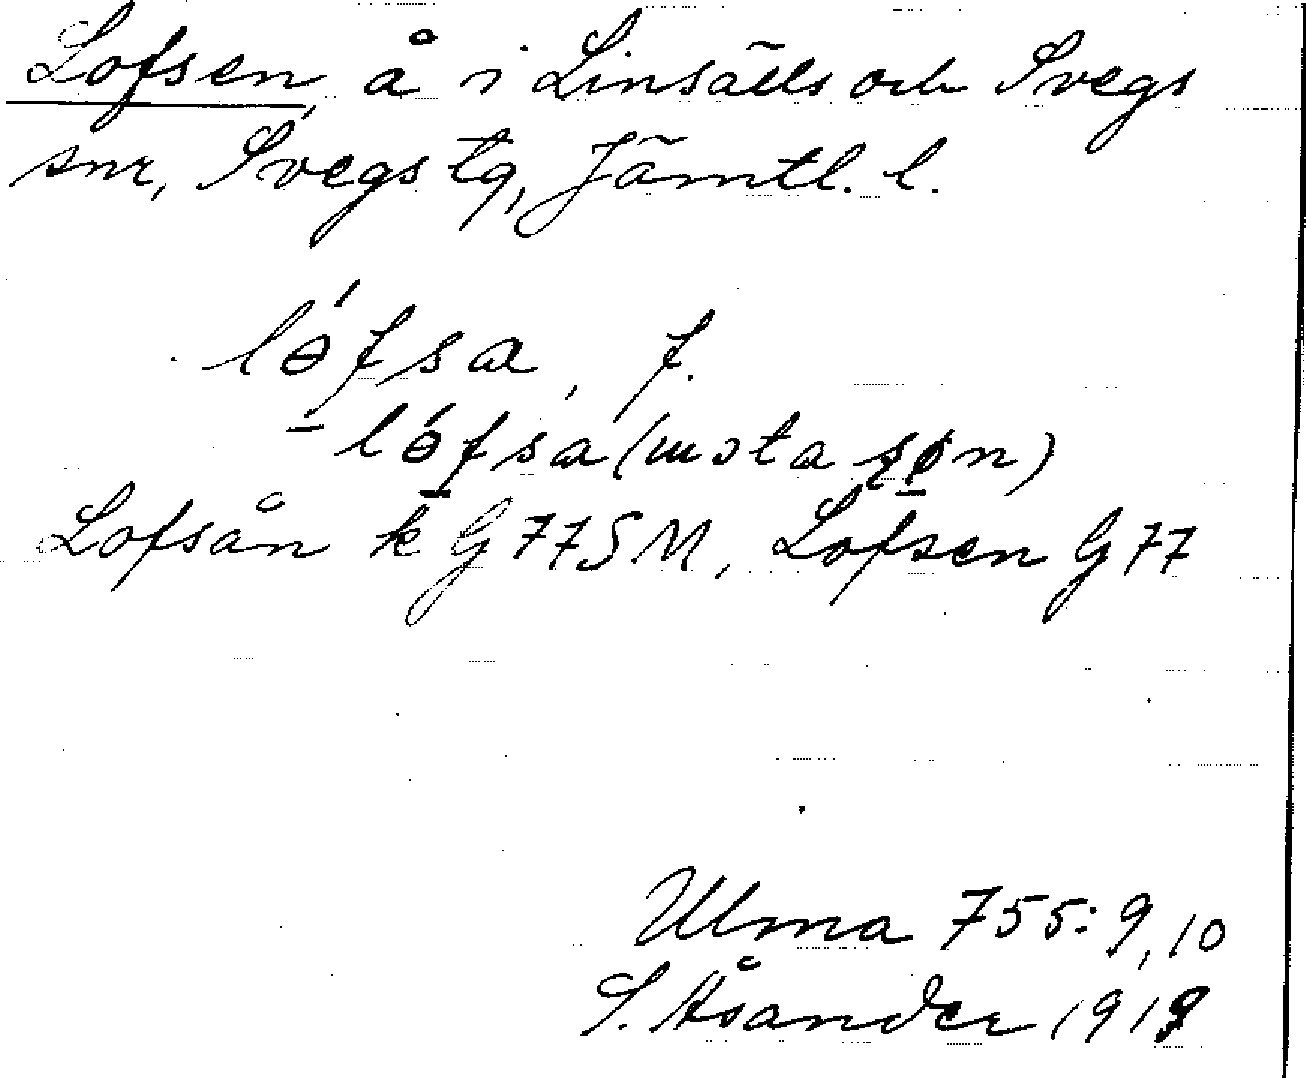 Lofsen, å i Linsälls och Svegs
snr, Svegs tg, Jämtl. l.
lə́fsa, f.
lə́fsa (mɔta
Lofsån k G 77SM, Lofsen G 77
Ulma 755: 9, 10
S. Åsander 1919